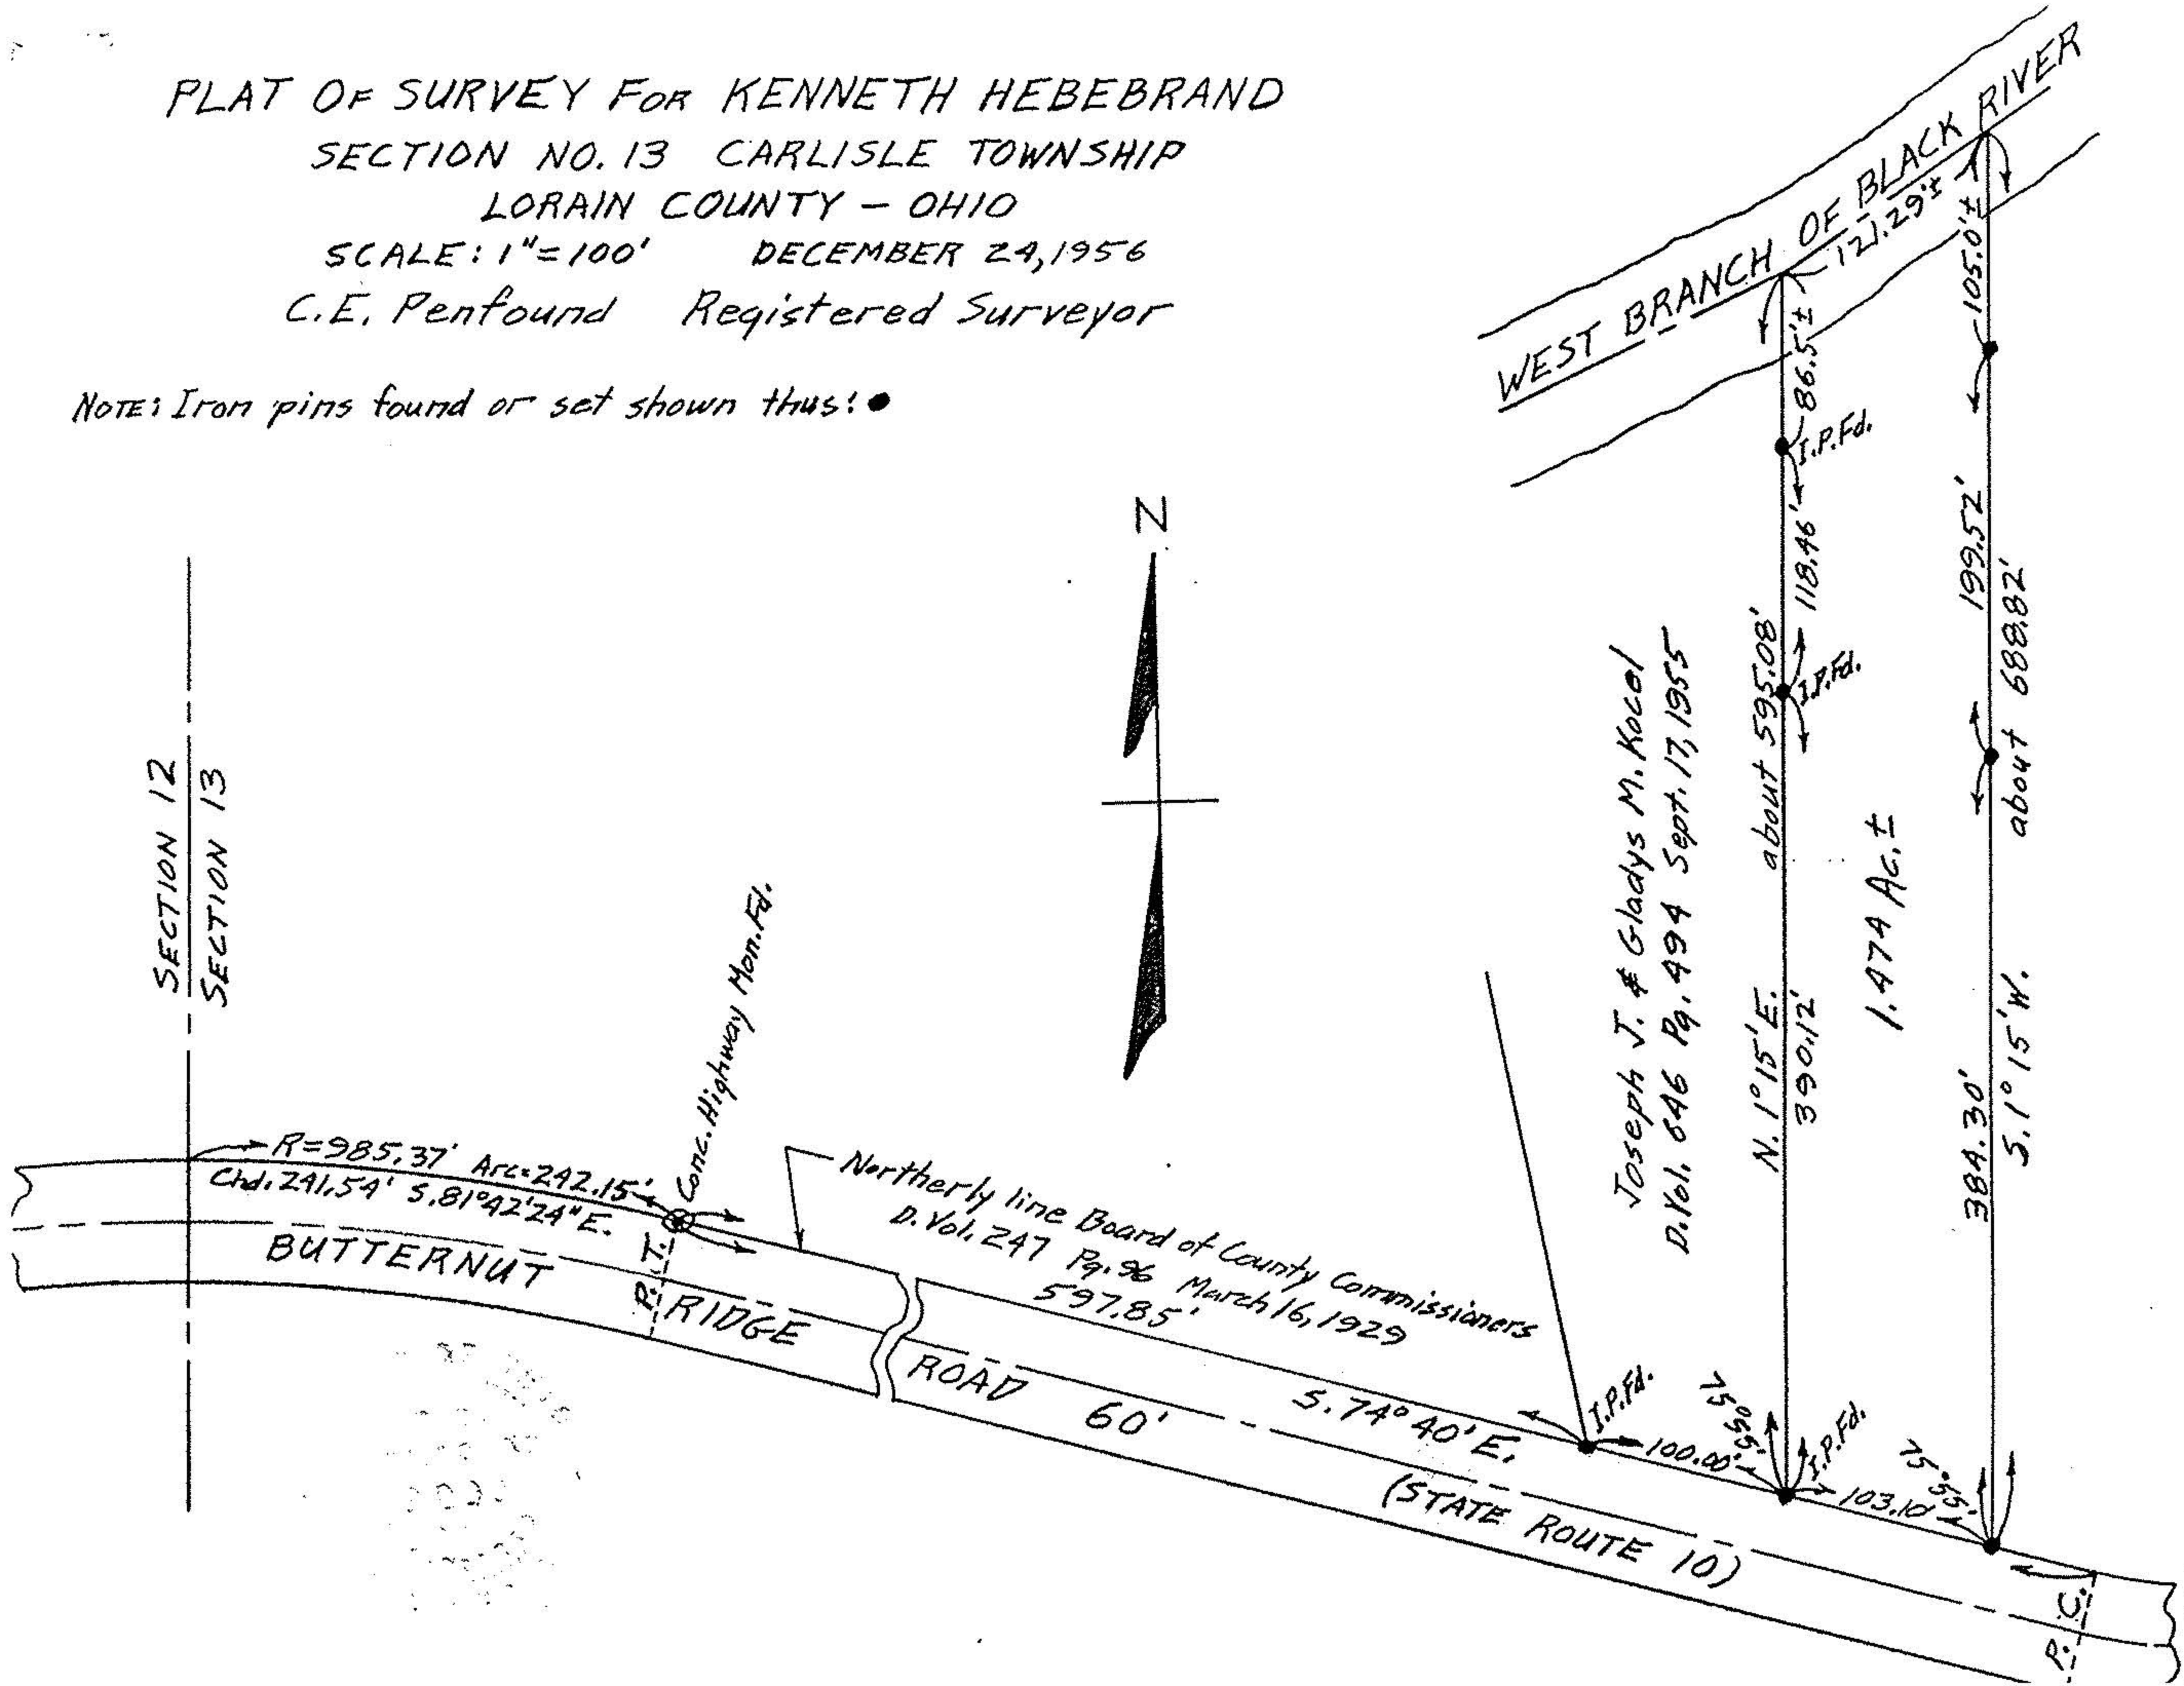 PLAT OF SURVEY FOR KENNETH HEBEBRAND
SECTION NO. 13 CARLISLE TOWNSHIP
LORAIN COUNTY - OHIO
SCALE: 1"=100' DECEMBER 24, 1956
C.E. Penfound Registered Surveyor
NOTE: Iron pins found or set shown thus: ●
WEST BRANCH OF BLACK RIVER
121.29'±
86.5'±
105.0'±
I.P.Fd.
118.46'
199.52'
I.P.Fd.
about 595.08'
about 688.82'
N
Joseph J. & Gladys M. Kocel
D.Vol. 646 Pg. 494 Sept. 17, 1955
N. 1° 15' E.
390.12'
1.474 Ac.±
384.30'
S. 1° 15' W.
SECTION 12
SECTION 13
Conc. Highway Mon. Fd.
R=985.37' Arc=242.15'
Chd. 241.54' S.81°42'24"E.
P. T.
Northerly line Board of County Commissioners
D. Vol. 247 Pg. 96 March 16, 1929
597.85'
BUTTERNUT RIDGE ROAD 60'
S. 74° 40' E.
(STATE ROUTE 10)
I.P.Fd.
100.00'
75°55'
I.P.Fd.
103.10'
75°55'
P. C.